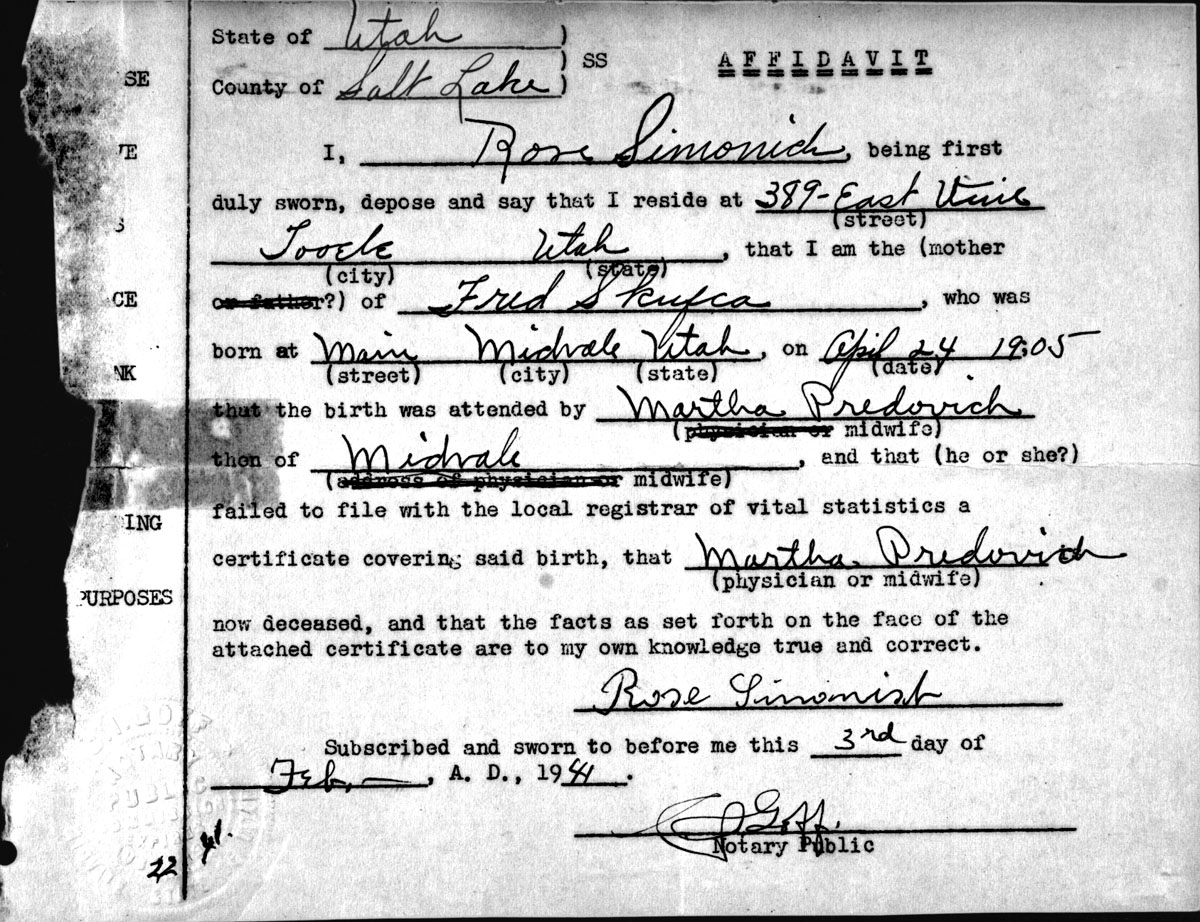 State of Utah )
) SS AFFIDAVIT
County of Salt Lake )
I, Rose Simonich, being first
duly sworn, depose and say that I reside at 389-East Vine
(street)
Tooele Utah, that I am the (mother
(city) (state)
or father?) of Fred Skufca, who was
born at Main Midvale Utah, on April 24 1905
(street) (city) (state) (date)
that the birth was attended by Martha Predovich
(physician or midwife)
then of Midvale, and that (he or she?)
(address of physician or midwife)
failed to file with the local registrar of vital statistics a
certificate covering said birth, that Martha Predovich
(physician or midwife)
now deceased, and that the facts as set forth on the face of the
attached certificate are to my own knowledge true and correct.
Rose Simonich
Subscribed and sworn to before me this 3rd day of
Feb, A. D., 1941.
Goff.
Notary Public
SE
VE
S
CE
NK
ING
PURPOSES
22 41.